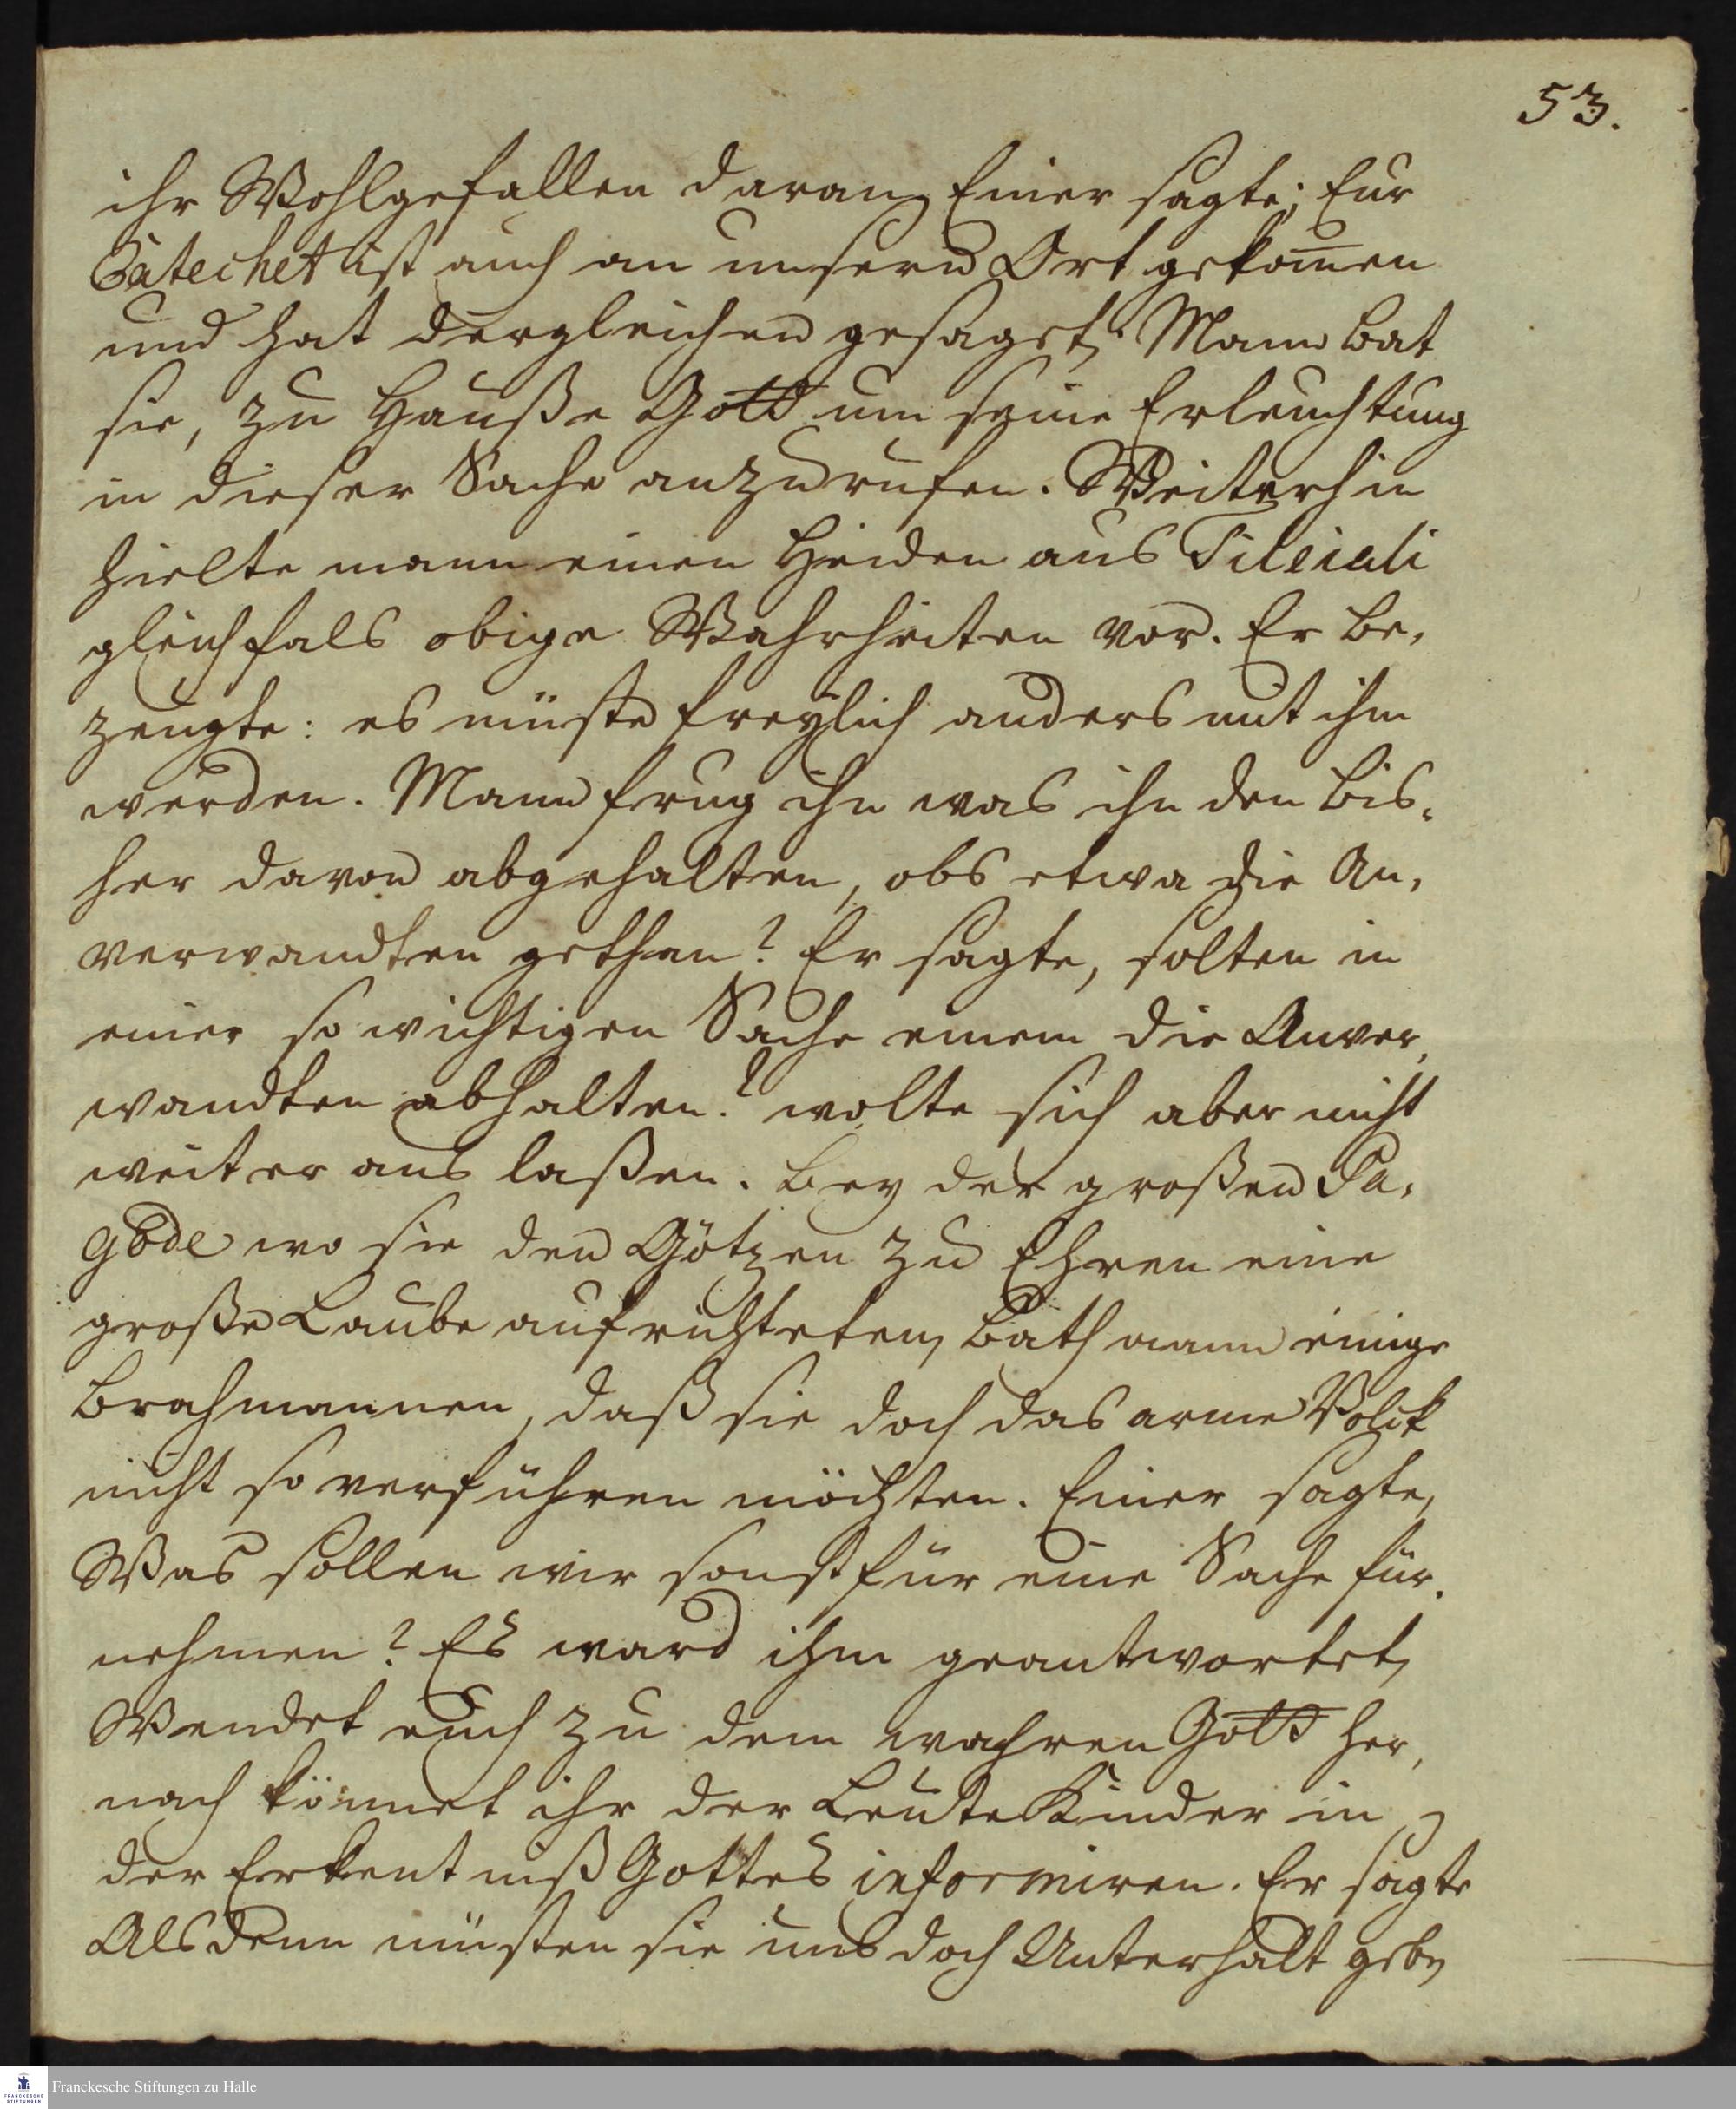 53.
ihr Wohlgefallen daran, Einer sagte; Eur
Catechet ist auch an unsern Ort gekom̄en
und hat dergleichen gesaget, Mann bat
sie, zu Hauße Gott um seine Erleuchtung
in dieser Sache anzurufen. Weiterhin
hielte mann einen Heiden aus Tileiali
gleichfals obige Wahrheiten vor. Er be,
zeugte: es müste freylich anders mit ihm
werden. Mann frug ihn was ihn den bis,
her davon abgehalten, obs etwa die An,
verwandten gethan? Er sagte, solten in
einer so wichtigen Sache einem die Anver,
wandten abhalten? wolte sich aber nicht
weiter aus laßen. Bey der großen Pa,
gode wo sie den Götzen zu Ehren eine
große Laube aufrichteten, bath mann einige
Brahmannen, daß sie doch das arme Volck
nicht so verführen möchten. Einer sagte,
Was sollen wir sonst für eine Sache für,
nehmen? Es ward ihm geantwortet,
Wendet euch zu dem wahren Gott her,
nach könnet ihr der Leute Kinder in
der Erkentniß Gottes informiren. Er sagte
Alsdenn müsten sie uns doch Unterhalt geben
FRANCKESCHE STIFTUNGEN
Franckesche Stiftungen zu Halle